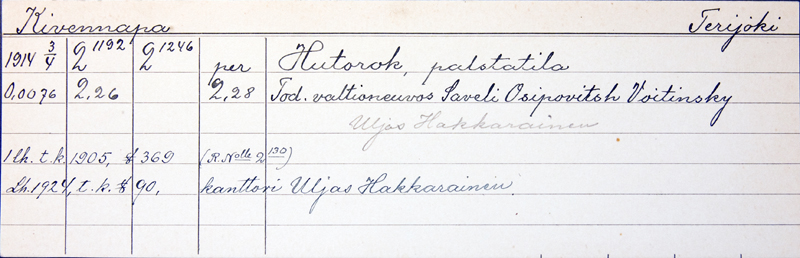 Kivennapa Terijoki
1914 3/4 2 1192 2 1246 per Hutorok, palstatila
0,0076 2,26 2,28 Tod. valtioneuvos Saveli Osipovitsh Voitinsky
Uljas Hakkarainen
1 lh. t.k. 1905, § 369 (R.Nolle 2 130)
Lh. 1924, t.k. § 90, kanttori Uljas Hakkarainen.